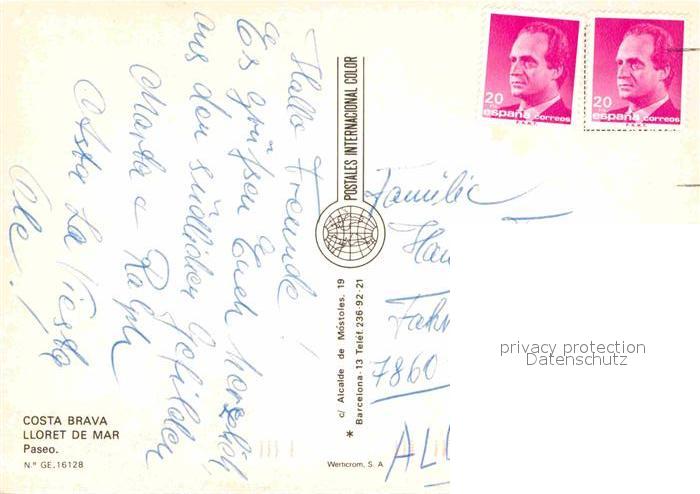 Hallo Freunde!
Es grüßen Euch herzlich
aus den südlichen Gefilden
Marta & Ralph
Asta La Fiesta
Ole!
POSTALES INTERNACIONAL COLOR
c/ Alcalde de Móstoles, 19
Barcelona-13 Teléf. 236-92-21
Familie
Fah
7860
20
españa correos
F.N.M.T.
20
españa correos
F.N.M.T.
privacy protection
Datenschutz
COSTA BRAVA
LLORET DE MAR
Paseo.
N.º GE.16128
Werticrom, S. A.